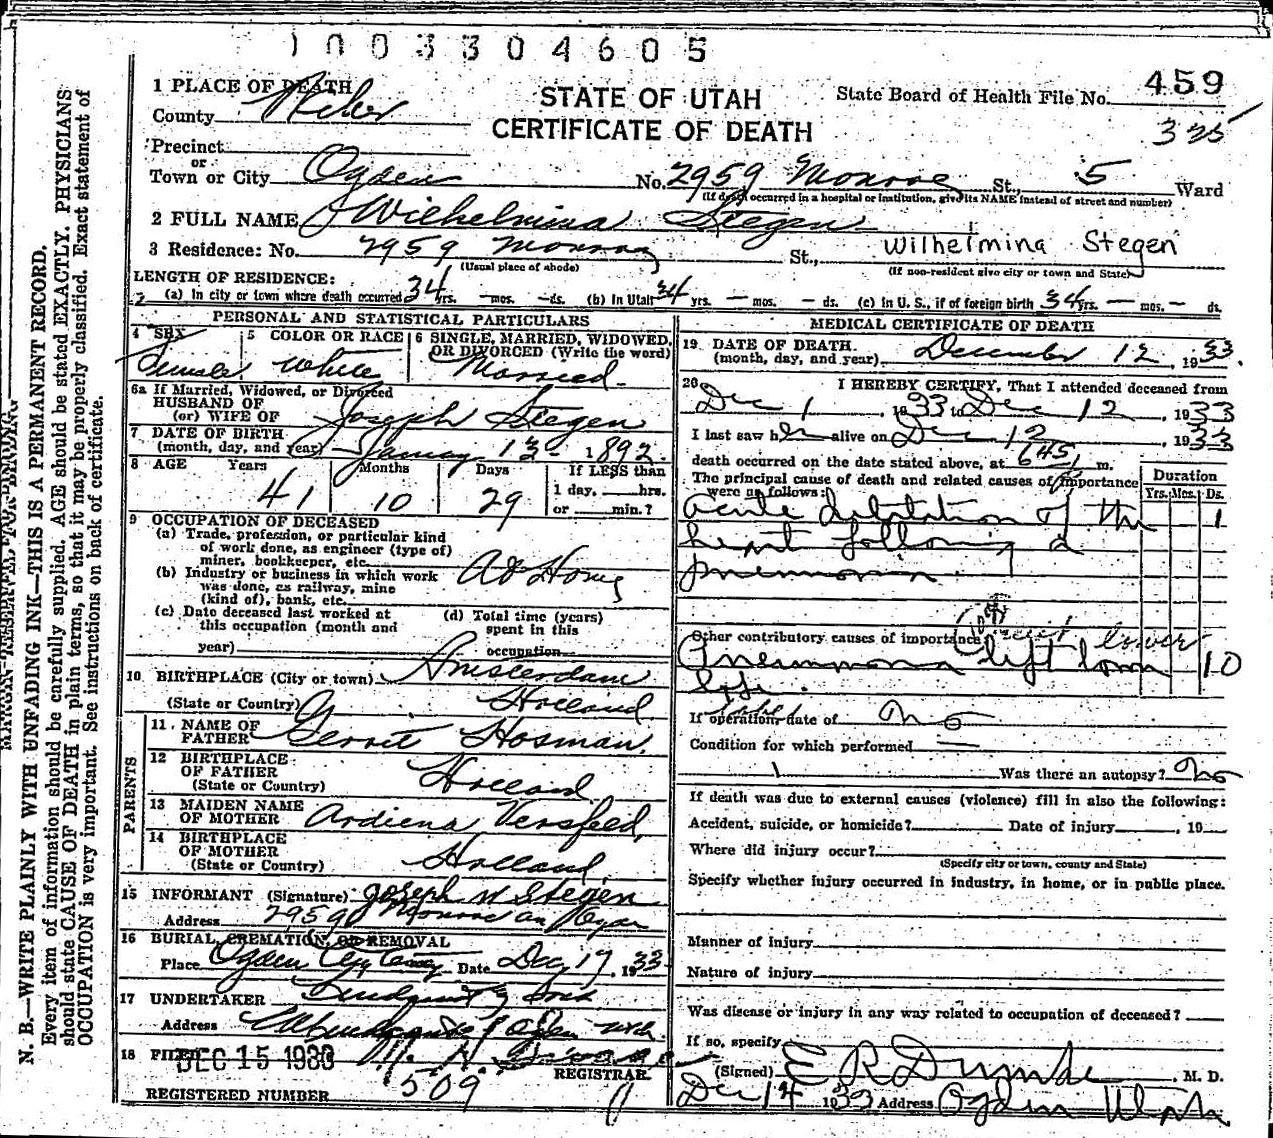 1003304605
1 PLACE OF DEATH
County Weber
STATE OF UTAH
CERTIFICATE OF DEATH
State Board of Health File No. 459
325
Precinct
or
Town or City Ogden No. 2959 Monroe St., 5 Ward
(If death occurred in a hospital or institution, give its NAME instead of street and number)
2 FULL NAME Wilhelmina Stegen
3 Residence: No. 2959 Monroe St., Wilhelmina Stegen
(Usual place of abode) (If non-resident give city or town and State)
LENGTH OF RESIDENCE:
(a) In city or town where death occurred 34 yrs. — mos. — ds. (b) In Utah 34 yrs. — mos. — ds. (c) In U. S., if of foreign birth 34 yrs. — mos. — ds.
PERSONAL AND STATISTICAL PARTICULARS
4 SEX Female
5 COLOR OR RACE White
6 SINGLE, MARRIED, WIDOWED,
OR DIVORCED (Write the word)
Married
6a If Married, Widowed, or Divorced
HUSBAND OF
(or) WIFE OF Joseph Stegen
7 DATE OF BIRTH
(month, day, and year) January 13 - 1892
8 AGE Years Months Days If LESS than
1 day, hrs.
or min.?
41 10 29
9 OCCUPATION OF DECEASED
(a) Trade, profession, or particular kind
of work done, as engineer (type of)
miner, bookkeeper, etc.
At Home
(b) Industry or business in which work
was done, as railway, mine
(kind of), bank, etc.
(c) Date deceased last worked at
this occupation (month and
year)
(d) Total time (years)
spent in this
occupation
10 BIRTHPLACE (City or town) Amsterdam
(State or Country) Holland
PARENTS
11. NAME OF
FATHER Gerrit Hosman
12 BIRTHPLACE
OF FATHER
(State or Country) Holland
13 MAIDEN NAME
OF MOTHER Ardiena Versfeld
14 BIRTHPLACE
OF MOTHER
(State or Country) Holland
15 INFORMANT (Signature) Joseph W Stegen
Address 2959 Monroe av Ogden
16 BURIAL, CREMATION, OR REMOVAL
Place Ogden City Date Dec 17, 1933
17 UNDERTAKER Lindquist & Sons
Address Ogden Utah
18 FILED DEC 15 1933
REGISTRAR
REGISTERED NUMBER 509
MEDICAL CERTIFICATE OF DEATH
19 DATE OF DEATH
(month, day, and year) December 12, 1933.
20 I HEREBY CERTIFY, That I attended deceased from
Dec 1, 1933 to Dec 12, 1933
I last saw her alive on Dec 12, 1933
death occurred on the date stated above, at 645 m.
The principal cause of death and related causes of importance
were as follows:
Duration
Yrs. Mos. Ds.
Acute dilatation of the 1
heart following a
pneumonia.
Other contributory causes of importance
lower
Pneumonia left lower 10
lobe.
If operation, date of no
Condition for which performed —
Was there an autopsy? No
If death was due to external causes (violence) fill in also the following:
Accident, suicide, or homicide? Date of injury , 19
Where did injury occur?
(Specify city or town, county and State)
Specify whether injury occurred in industry, in home, or in public place.
Manner of injury
Nature of injury
Was disease or injury in any way related to occupation of deceased?
If so, specify
(Signed) E R Dumke, M. D.
Dec 14 1933 Address Ogden Utah
MARGIN RESERVED FOR BINDING
N. B.—WRITE PLAINLY WITH UNFADING INK—THIS IS A PERMANENT RECORD.
Every item of information should be carefully supplied. AGE should be stated EXACTLY. PHYSICIANS
should state CAUSE OF DEATH in plain terms, so that it may be properly classified. Exact statement of
OCCUPATION is very important. See instructions on back of certificate.